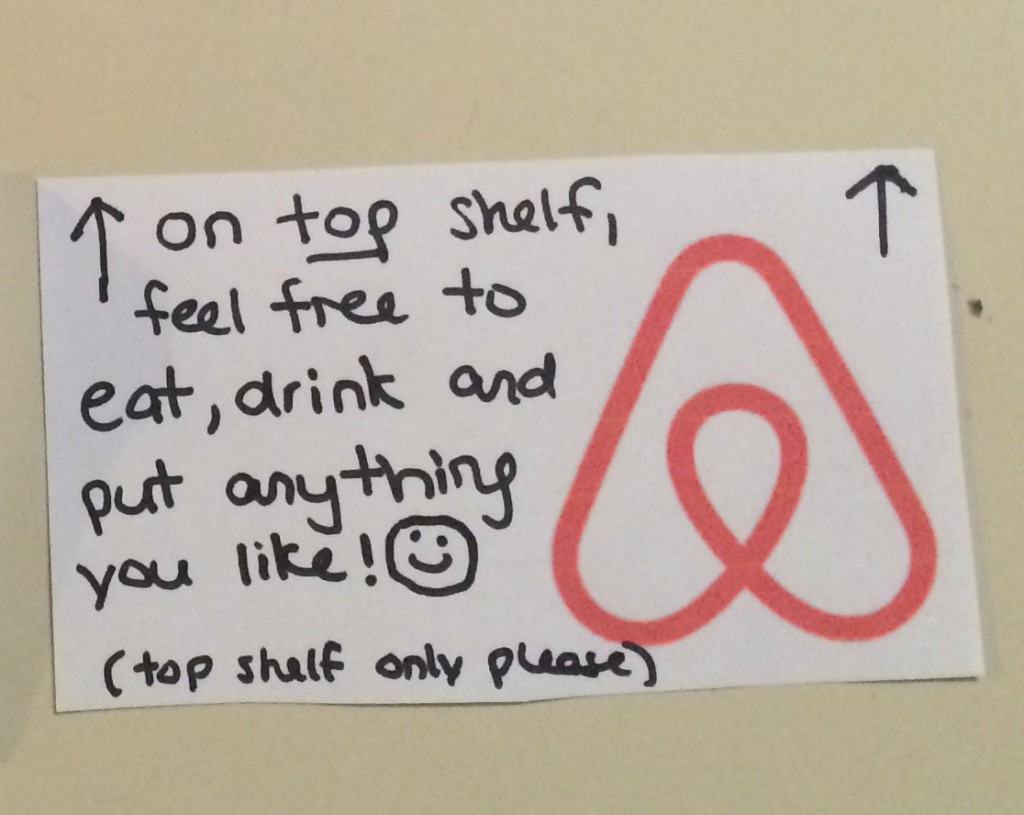 ↑ on top shelf, ↑
feel free to
eat, drink and
put anything
you like! ☺
(top shelf only please)